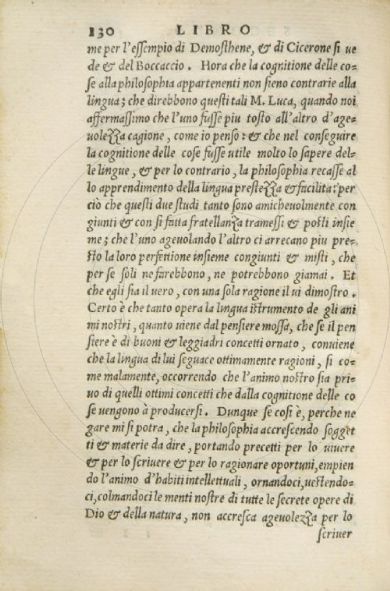 130 LIBRO
me per l'essempio di Demosthene, & di Cicerone si ue
de & del Boccaccio. Hora che la cognitione delle co-
se alla philosophia appartenenti non sieno contrarie alla
lingua; che direbbono questi tali M. Luca, quando noi
affermassimo che l'uno fusse piu tosto all'altro d'age-
uolezza cagione, come io penso: & che nel conseguire
la cognitione delle cose fusse utile molto lo sapere del-
le lingue, & per lo contrario, la philosophia recasse al
lo apprendimento della lingua prestezza & facilita: per
ciò che questi due studi tanto sono amicheuolmente con
giunti & con si fatta fratellanza tramessi & posti insie
me; che l'uno ageuolando l'altro ci arrecano piu pre-
sto la loro perfettione insieme congiunti & misti, che
per se soli ne farebbono, ne potrebbono giamai. Et
che egli sia il uero, con una sola ragione il ui dimostro.
Certo è che tanto opera la lingua istrumento de gli ani
mi nostri, quanto uiene dal pensiere mossa, che se il pen
siere è di buoni & leggiadri concetti ornato, conuiene
che la lingua di lui seguace ottimamente ragioni, si co-
me malamente, occorrendo che l'animo nostro sia pri-
uo di quelli ottimi concetti che dalla cognitione delle co
se uengono à prodursi. Dunque se cosi è, perche ne
gare mi si potra, che la philosophia accrescendo sogget
ti & materie da dire, portando precetti per lo uiuere
& per lo scriuere & per lo ragionare oportuni, empien
do l'animo d'habiti intellettuali, ornandoci, uestendo-
ci, colmandoci le menti nostre di tutte le secrete opere di
Dio & della natura, non accresca ageuolezza per lo
scriuer